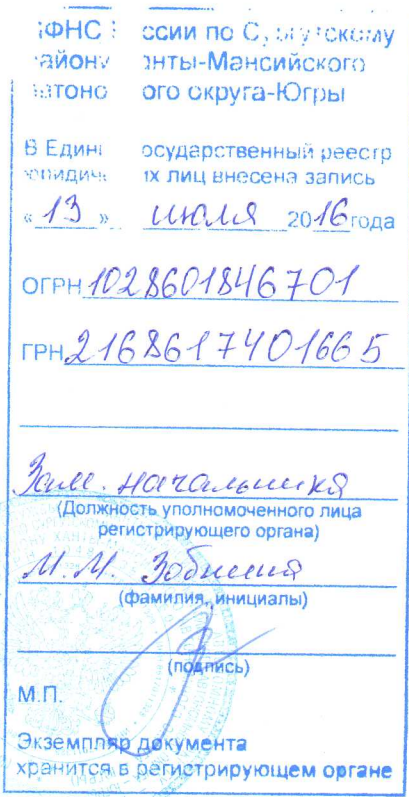 ИФНС России по Сургутскому
району Ханты-Мансийского
автономного округа-Югры
В Единый государственный реестр
юридических лиц внесена запись
« 13 » июля 2016 года
ОГРН 1028601846701
ГРН 2168617401665
Зам. начальника
(Должность уполномоченного лица
регистрирующего органа)
М.М.
(фамилия, инициалы)
(подпись)
М.П.
Экземпляр документа
хранится в регистрирующем органе